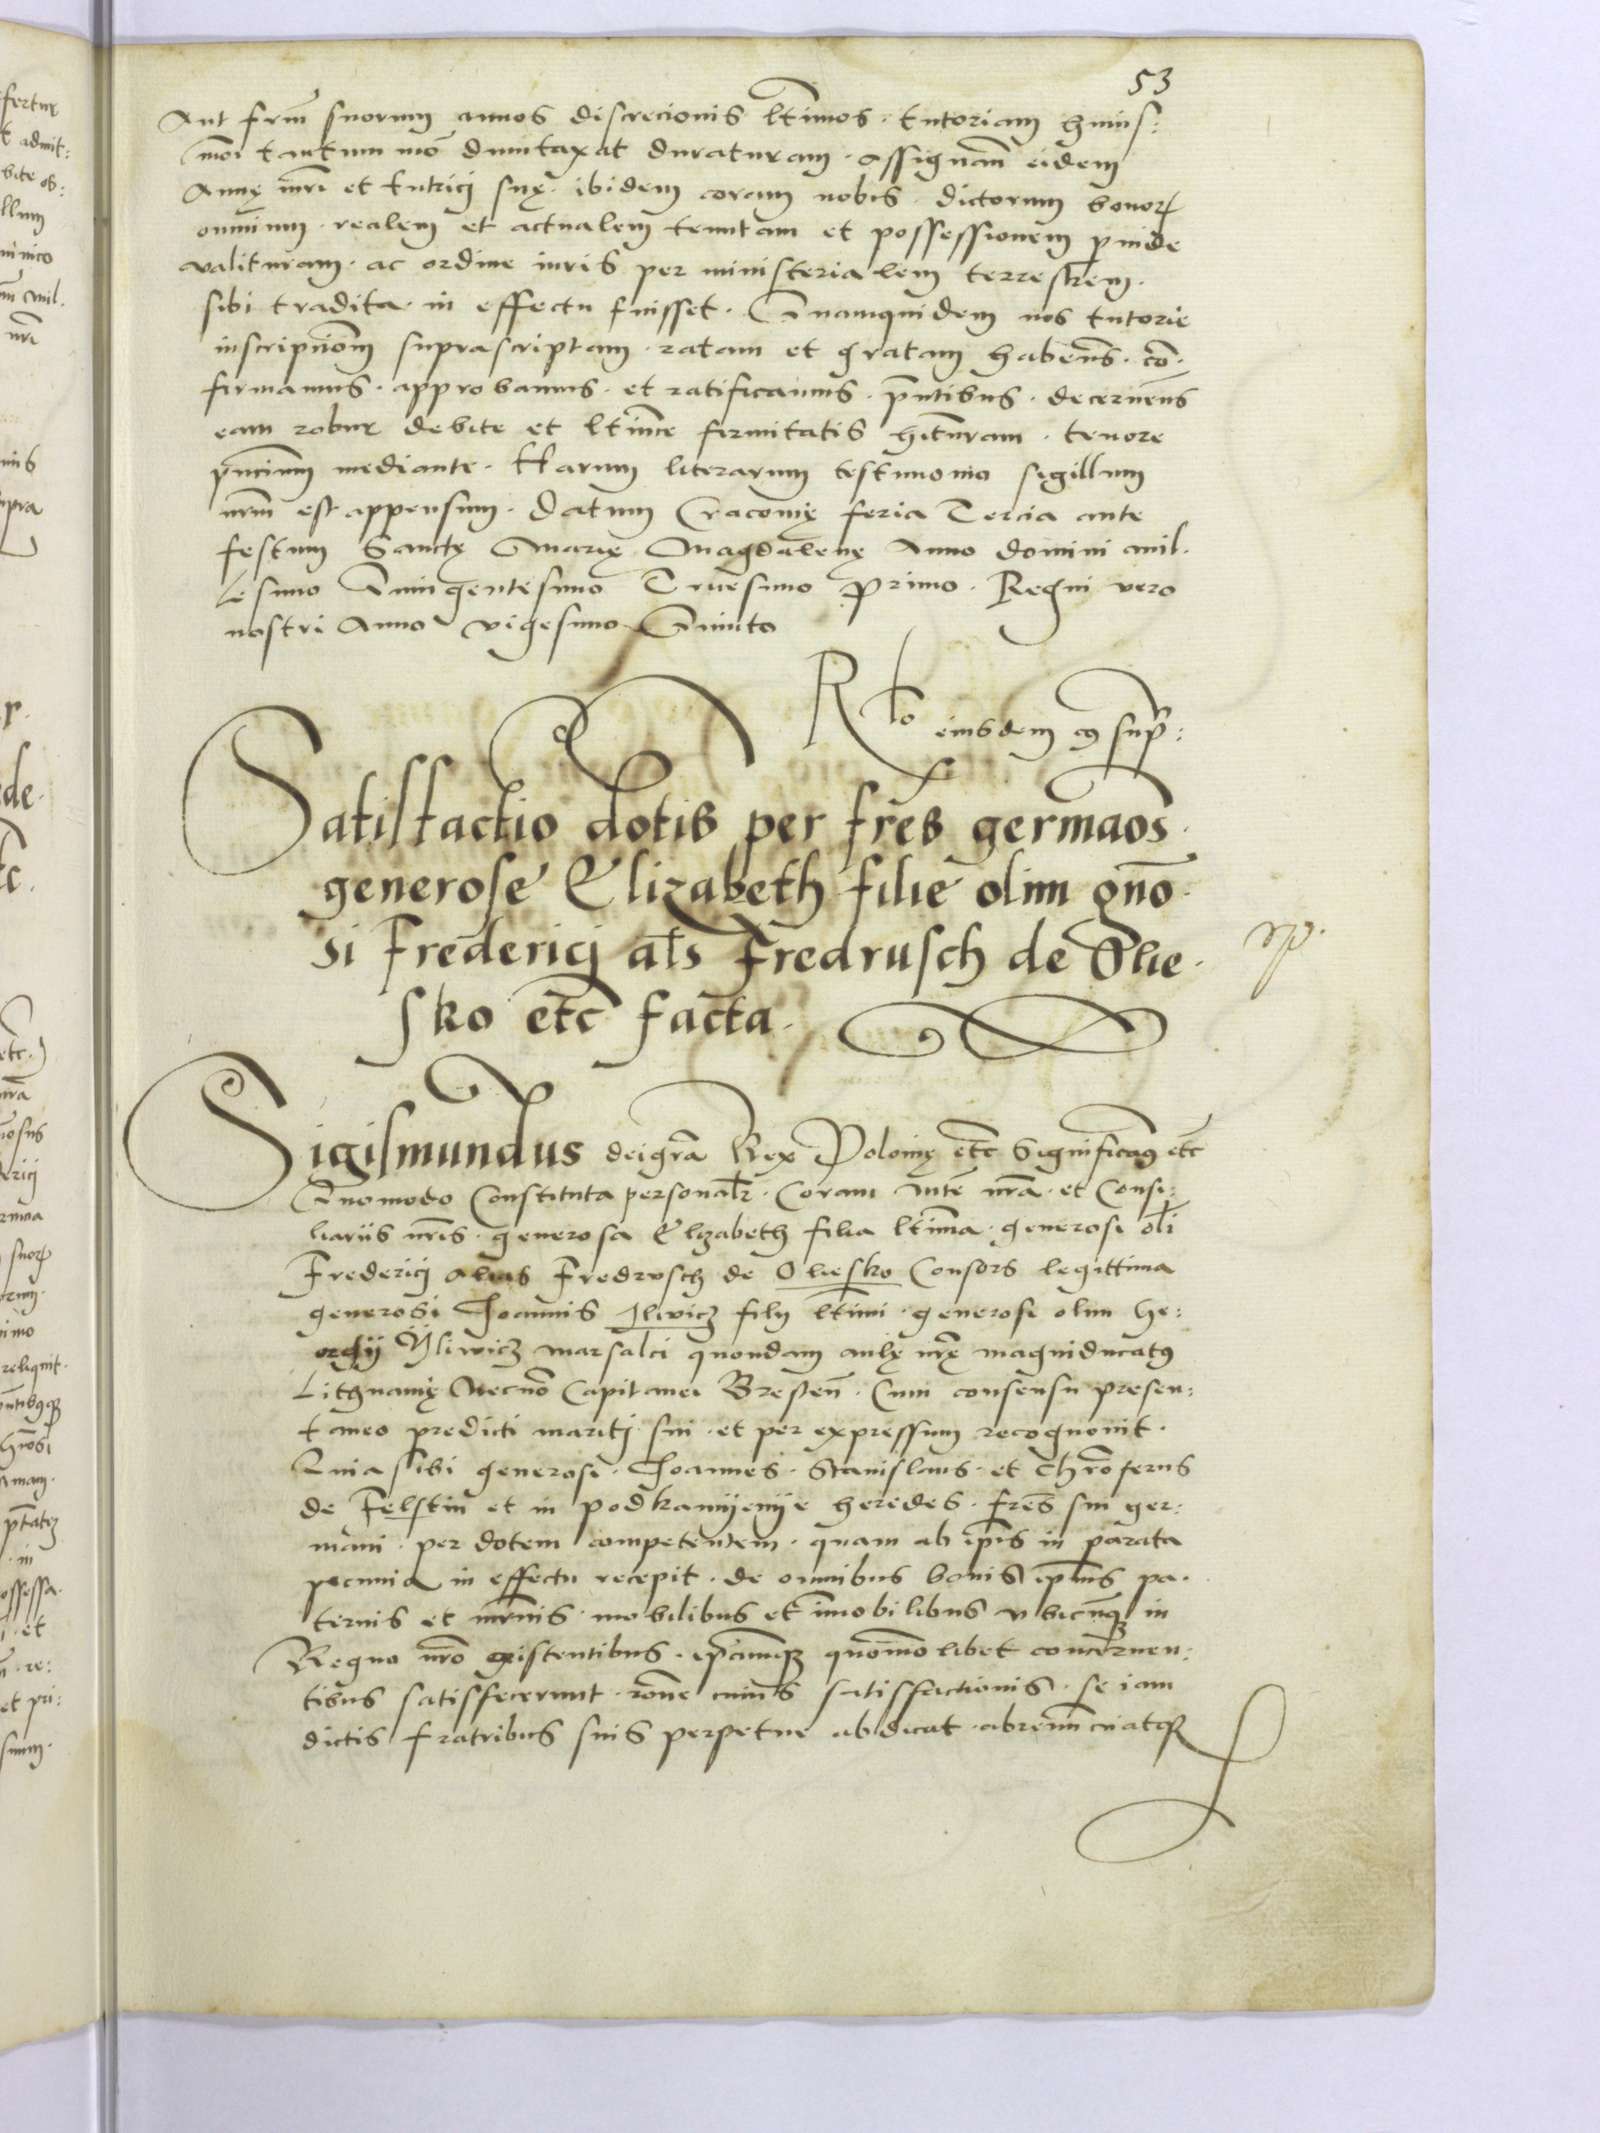 53
Aut frm̄ suorum annos discrecionis ltīmos · tutoriam huius:
moī tantum mō dumtaxat duraturam · assignam̄ eidem
Annę mrī et tutricj suę · ibidem coram nobis · dictorum bonoꝝ
omnium · realem et actualem tenutam et possessionem perinde
valituram · ac ordine iuris per ministerialem terrestrem ·
sibi tradita · in effectu fuisset · Quamquidem nos tutorie
inscripcioēm suprascriptam · ratam et gratam habens̄ · cō·
firmamus · approbamus · et ratificamus · pn̄tibus · decernens̄
eam robur debite et ltīme firmitatis hitūram · tenore
pn̄cium mediante · Harum literarum testimonio sigillum
nrm̄ est appensum · Datum Cracovię feria Tercia ante
festum Sanctę Marię Magdalenę Anno domini mil·
lesimo Quingentesimo Tricesimo Primo · Regni vero
nostri Anno vigesimo Quinto
Rlo eiusdem cꝰ supͬ:
Satisfactio dotis per frēs germaōs ·
generose Elizabeth filie olim gnō·
si Fredericj als̄ Fredrusch de Olie·
sko etc̄ facta ·
Sigismundus deigrā Rex Polonię etc̄ Significamꝰ etc̄
Quomodo Constituta personalr̄ · Coram Mt̄e nrā · et Consi:
liariis nrīs · generosa Elizabeth filia ltīma · generosi olī
Fredericj alias Fredrusch de Oliesko Consors legittima
generosi Joannis Jlinicz filij ltīmi · generosi olim Ge:
orgij Ÿlinicz marsalci quondam aulę nrę̄ magniducatꝰ
Lithuanię Necnō Capitanei Bresten̄ · Cum consensu presen:
taneo predicti maritj sui · et per expressum recognovit ·
Quia sibi generosi · Joannes · Stanislaus · et Chrōferus
de Felstin et in podkamÿenÿe heredes · frēs sui ger:
mani · per dotem competentem · quam ab ipīs in parata
pecunia in effectu recepit · de omnibus bonis ipīus pa·
ternis et mrn̄is · mobilibus et imōbilibus vbicunqꝫ in
Regno nrō existentibus · ipamqꝫ quomōlibet concernen·
tibus satisfecerunt · rōne cuius satisfactionis · se iam
dictis fratribus suis perpetue abdicat · abrenunciatqꝫ